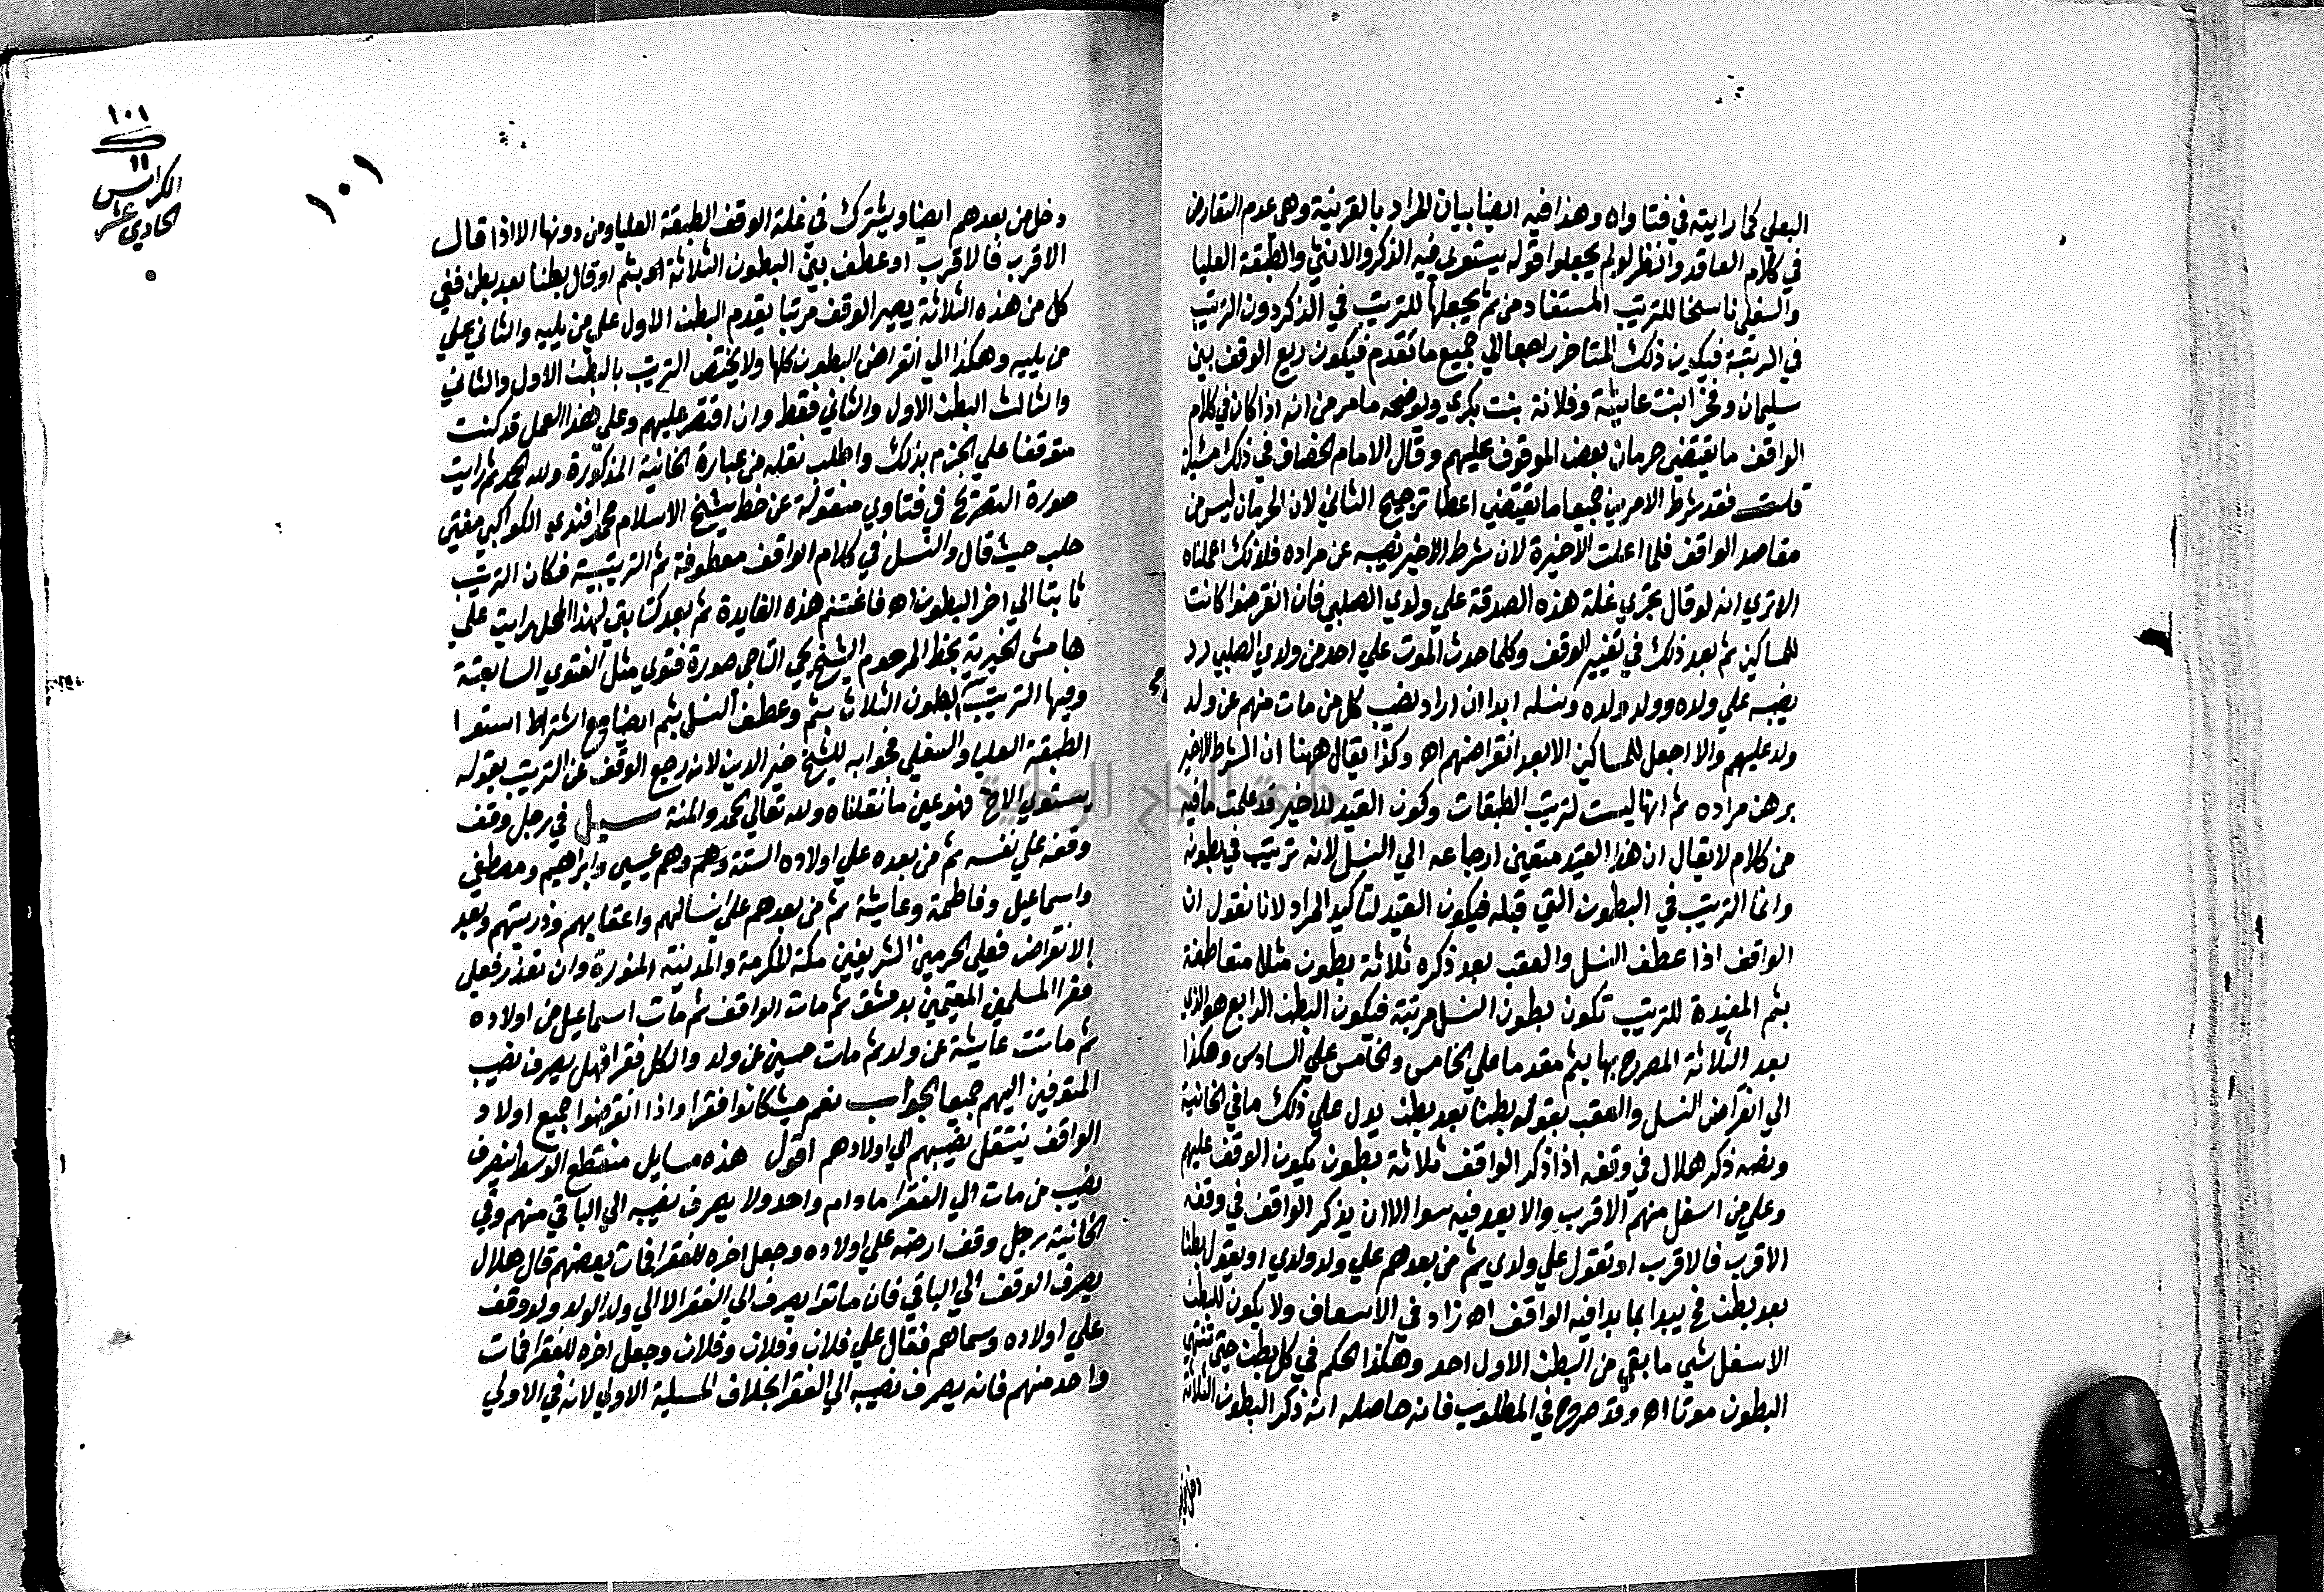 البعلي كما رايته في فتاواه وهذا فيه ايضا بيان المراد بالقرينة وهي عدم التعارض
في كلام العاقد وانظر لو لم يجعلوا قوله يستوي فيه الذكر والانثى والطبقة العليا
والسفلى ناسخا للترتيب المستفاد من ثم يجعلها للترتيب في الذكر دون الترتيب
في الرتبة فيكون ذلك المتاخر راجعا الي جميع ما تقدم فيكون ريع الوقف بين
سليمان وفخرا بنت عايشة وفلانة بنت بكري ويوضحه ما مر من انه اذا كان في كلام
الواقف ما يقتضي حرمان بعض الموقوف عليهم وقال الامام الخصاف في ذلك
قلت فقد شرط الامرين جميعا ما يقتضي اعطا ترجيح الثاني لان الحرمان ليس من
مقاصد الواقف فلما اعملت الاخيرة لان شرط الاخير نصبه عن مراده فلذلك اعملناه
الا تري انه لو قال تجري غلة هذه الصدقة علي ولدي الصلبي فان انقرضوا كانت
للمساكين ثم بعد ذلك في تفسير الوقف وكلما حدث الموت علي احد من ولدي الصلبي رد
نصيبه علي ولده وولد ولده ونسله ابدا ان اراد نصيب كل من مات منهم عن ولد
ولد عليهم والا اجعل للمساكين الا بعد انقراضهم اه وكذا يقال ههنا ان الشرط الاخير
برهن مراده ثم انها ليست لترتيب الطبقات وكون القيد للاخير قد علمت ما فيه
من كلام لا يقال ان هذا القيد متعين ارجاعه الي النسل لانه ترتيب في بطونه
وانما الترتيب في البطون التي قبله فيكون القيد لتاكيد المراد لانا نقول ان
الواقف اذا عطف النسل والعقب بعد ذكره ثلاثة بطون مثلا متعاطفة
بثم المفيدة للترتيب تكون بطون النسل مرتبة فيكون البطن الرابع هو الذي
بعد الثلاثة المصرح بها بثم مقدما علي الخامس والخامس علي السادس وهكذا
الي انقراض النسل والعقب بقوله بطنا بعد بطن يدل علي ذلك ما في الخانية
ونصه ذكر هلال في وقفه اذا ذكر الواقف ثلاثة بطون يكون الوقف عليهم
وعلي من اسفل منهم الاقرب والابعد فيه سوا الا ان يذكر الواقف في وقفه
الاقرب فالاقرب او تقول علي ولدي ثم من بعدهم علي ولد ولدي او يقول بطنا
بعد بطن فح يبدا بما بدا فيه الواقف اه زاد في الاسعاف ولا يكون للبطن
الاسفل شي ما بقي من البطن الاول احد وهكذا الحكم في كل بطن حتي تنتهي
البطون موتا اه وقد صرح في المطلوب فانه حاصله انه ذكر البطون الثلاثة
١٠١
١١
الكراس
الحادي عشر
١٠١
دخل من بعدهم ايضا ويشترك في غلة الوقف الطبقة العليا ومن دونها الا اذا قال
الاقرب فالاقرب او عطف بين البطون الثلاثة بثم او قال بطنا بعد بطن ففي
كل من هذه الثلاثة يصير الوقف مرتبا يقدم البطن الاول علي من يليه والثاني علي
من يليه وهكذا الي انقراض البطون كلها ولا يختص الترتيب بالبطن الاول والثاني
والثالث البطن الاول والثاني فقط وان اقتصر عليهم وعلي هذا العمل قد كنت
متوقفا علي الجزم بذلك واطلب نقله من عبارة الخانية المذكورة ولله الحمد ثم رايت
صورة التصريح في فتاوي منقولة عن خط شيخ الاسلام محمد افندي الكواكبي مفتي
حلب حيث قال والنسل في كلام الواقف معطوفة ثم الترتيبية فكان الترتيب
ثابتا الي اخر البطون اه فاغتنم هذه الفايدة ثم بعد كتابتي لهذا المحل رايت علي
هامش الخيرية بخط المرحوم الشيخ يحي التاجي صورة فتوي مثل الفتوي السابقة
وفيها الترتيب البطون الثلاث بثم وعطف النسل بثم ايضا مع اشتراط استوا
الطبقة العليا والسفلي فجوابه للشيخ خير الدين لانه رجع الوقف عن الترتيب بقوله
يستوي الاخ فهو عين ما نقلناه ولله تعالي الحمد والمنة سيل في رجل وقف
وقفه علي نفسه ثم من بعده علي اولاده الستة وهم وهم عيسي وابراهيم ومصطفي
واسماعيل وفاطمة وعايشة ثم من بعدهم علي انسالهم واعقابهم وذريتهم وبعد
الانقراض فعلي الحرمين الشريفين مكة المكرمة والمدينة المنورة وان تعذر فعلي
فقرا المسلمين المقيمين بدمشق ثم مات الواقف ثم مات اسماعيل من اولاده
ثم ماتت عايشة عن ولد ثم مات حسين عن ولد والكل فقرا فهل يصرف نصيب
المتوفين اليهم جميعا الجواب نعم حيث كانوا فقرا واذا انقرضوا جميع اولاد
الواقف ينتقل نصيبهم الي اولادهم اقول هذه مسايل منقطع الوسط فيصرف
نصيب من مات الي الفقرا ما دام واحد ولا يصرف نصيبه الي الباقي منهم وفي
الخانية رجل وقف ارضه علي اولاده وجعل اخره للفقرا فمات بعضهم قال هلال
يصرف الوقف الي الباقي فان ماتوا يصرف الي الفقرا لا الي ولد الولد ولو وقف
علي اولاده وسماهم فقال علي فلان وفلان وفلان وجعل اخره للفقرا فمات
واحد منهم فانه يصرف نصيبه الي الفقرا بخلاف المسيلة الاولي لانه في الاولي